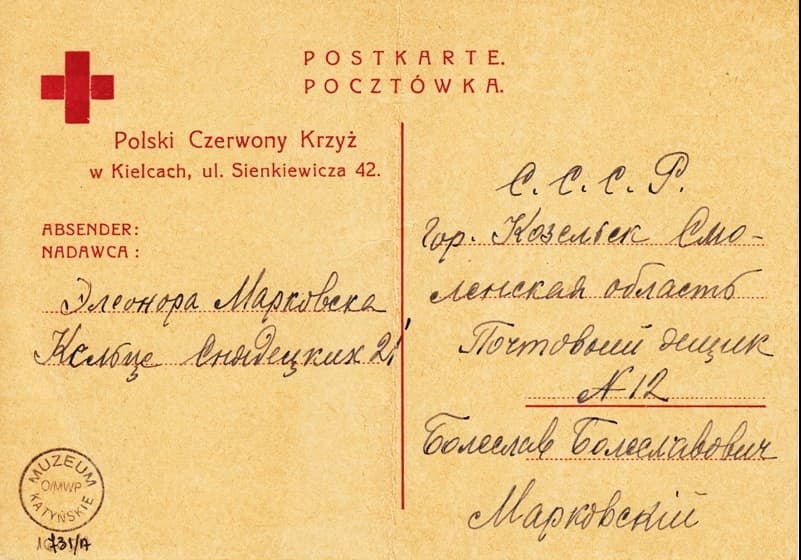 POSTKARTE.
POCZTÓWKA.
Polski Czerwony Krzyż
w Kielcach, ul. Sienkiewicza 42.
ABSENDER:
NADAWCA:
Элеонора Марковска
Кельце Снядецких 21
С. С. С. Р.
Гор. Козельск Смо-
ленская область
Почтовый ящик
N 12
Болеслав Болеславович
Марковскій
MUZEUM
O/MWP
KATYŃSKIE
731/A